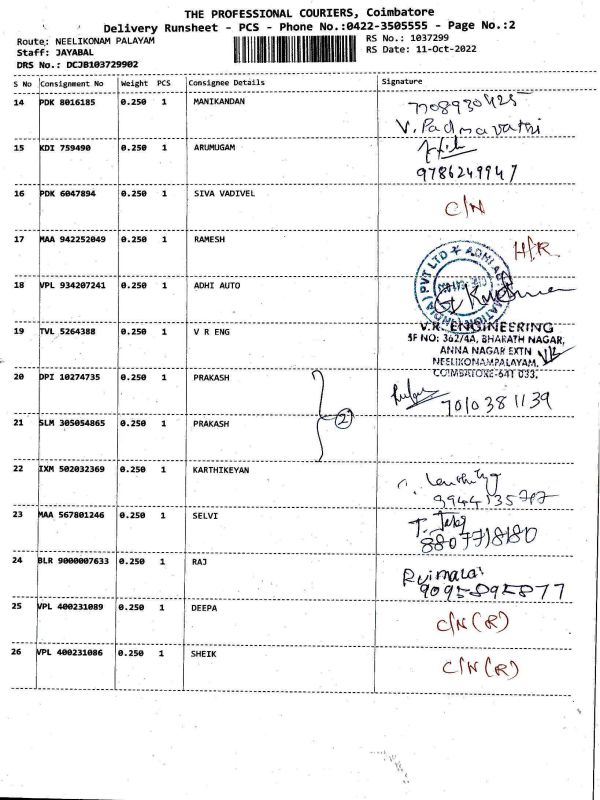 THE PROFESSIONAL COURIERS, Coimbatore
Delivery Runsheet - PCS - Phone No.:0422-3505555 - Page No.:2
Route: NEELIKONAM PALAYAM
Staff: JAYABAL
DRS No.: DCJB103729902
RS No.: 1037299
RS Date: 11-Oct-2022
S No Consignment No Weight PCS Consignee Details Signature
14 PDK 8016185 0.250 1 MANIKANDAN
7708930425
V. Padmavathi
15 KDI 759490 0.250 1 ARUMUGAM
9786249947
16 PDK 6047894 0.250 1 SIVA VADIVEL C/N
17 MAA 942252049 0.250 1 RAMESH H/R
18 VPL 934207241 0.250 1 ADHI AUTO
19 TVL 5264388 0.250 1 V R ENG
V.R. ENGINEERING
SF NO: 362/4A, BHARATH NAGAR,
ANNA NAGAR EXTN
NEELIKONAMPALAYAM,
COIMBATORE-641 033.
20 DPI 10274735 0.250 1 PRAKASH
2
7010381139
21 SLM 305054865 0.250 1 PRAKASH
22 IXM 502032369 0.250 1 KARTHIKEYAN
23 MAA 567801246 0.250 1 SELVI
24 BLR 9000007633 0.250 1 RAJ
9095895877
25 VPL 400231089 0.250 1 DEEPA C/N(R)
26 VPL 400231086 0.250 1 SHEIK C/N(R)